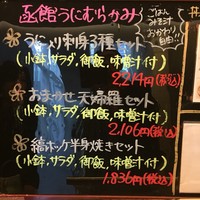 函館うにむらかみ
ごはん
みそ汁
おかわり
自由!!
うに入り刺身3種セット
(小鉢、サラダ、御飯、味噌汁付)
2,214円(税込)
おまかせ天婦羅セット
(小鉢、サラダ、御飯、味噌汁付)
2,106円(税込)
縞ホッケ半身焼きセット
(小鉢、サラダ、御飯、味噌汁付)
1,836円(税込)